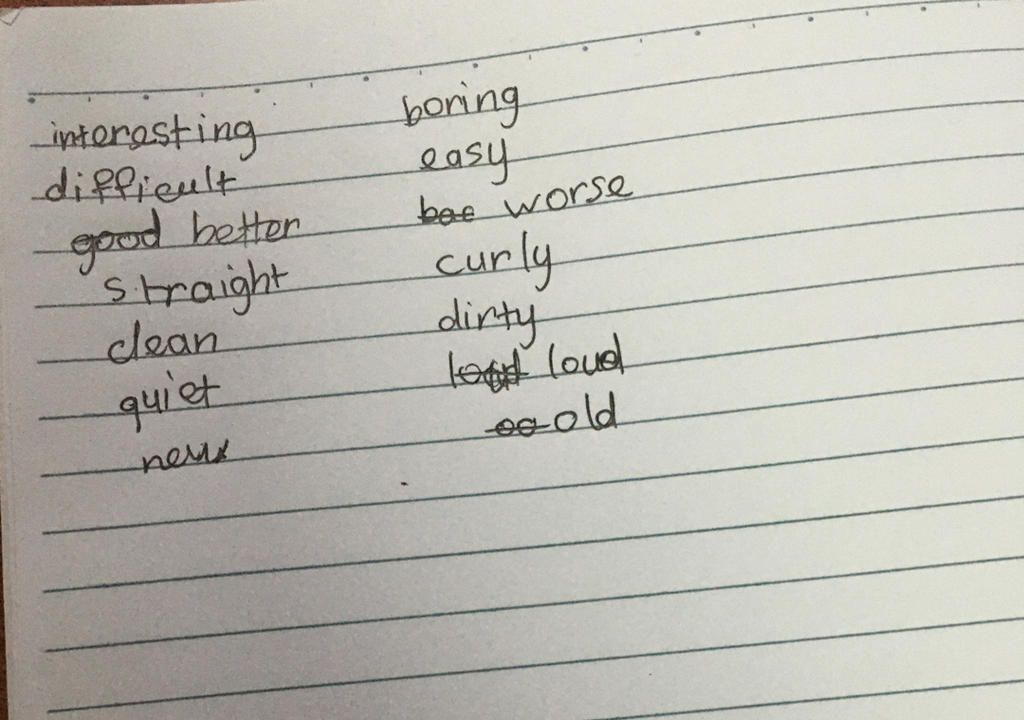 interesting boring
difficult easy
good better worse
straight curly
clean dirty
quiet loud
new old